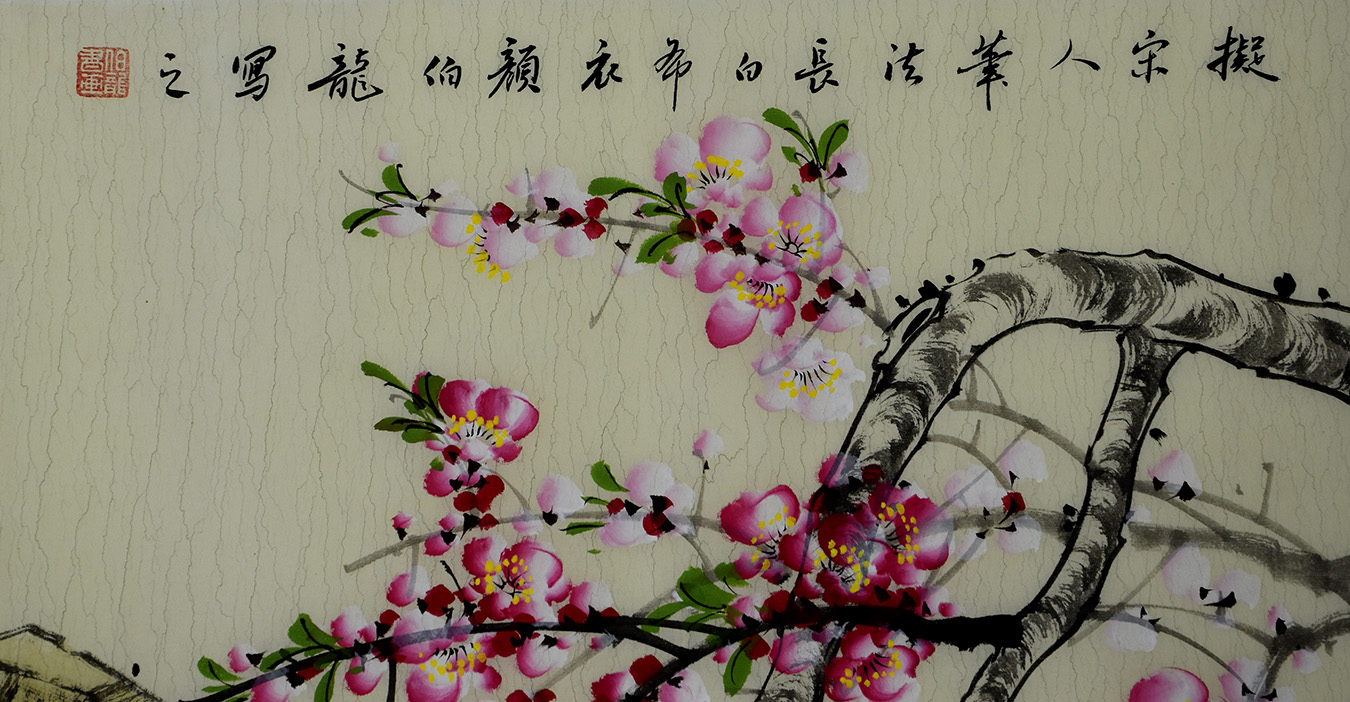 擬宋人筆法長白布衣顏伯龍寫之
伯龍書畫